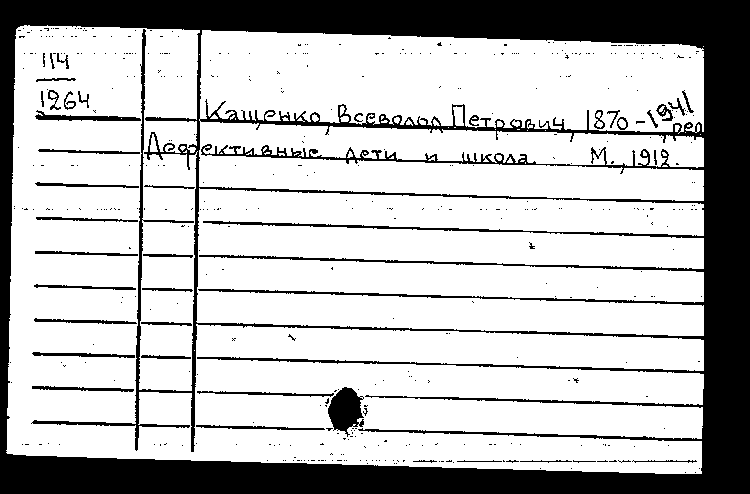 114
1264
Кащенко, Всеволод Петрович, 1870-1941, ред.
Дефективные дети и школа. М., 1912.